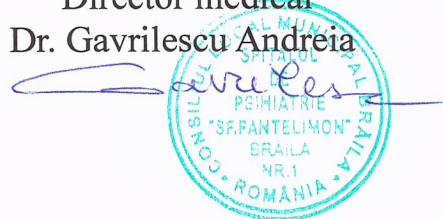 Director medical
Dr. Gavrilescu Andreia
Gavriles
CONSILIUL LOCAL MUNICIPAL BRĂILA
SPITALUL
DE
PSIHIATRIE
"SF.PANTELIMON"
BRAILA
NR.1
* ROMÂNIA *